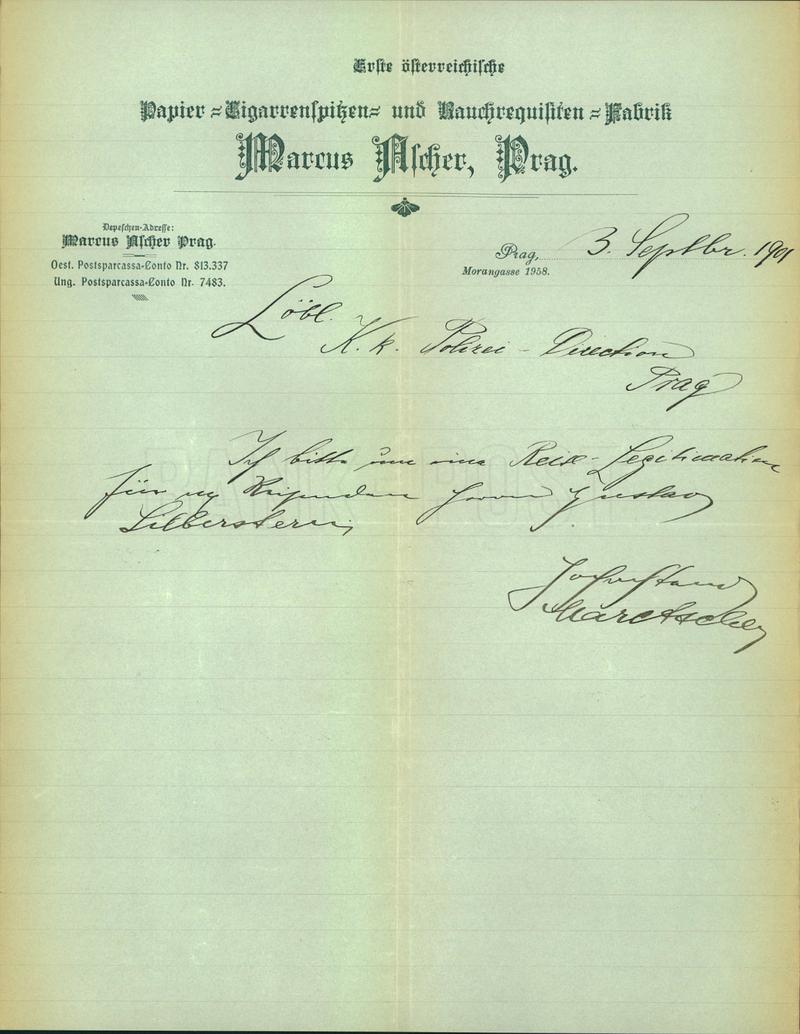 Erste österreichische
Papier-Cigarrenspitzen- und Rauchrequisiten-Fabrik
Marcus Ascher, Prag.
Depeschen-Adresse:
Marcus Ascher Prag.
Oest. Postsparcassa-Conto Nr. 813.337
Ung. Postsparcassa-Conto Nr. 7483.
Prag, 3. Septbr. 1901
Morangasse 1958.
Löbl.
K. k. Polizei-Direction
Prag
Ich bitte um eine Reise-Legitimation
für Reisenden Herrn Gustav
Silberstern,
Hochachtend
Marc Ascher